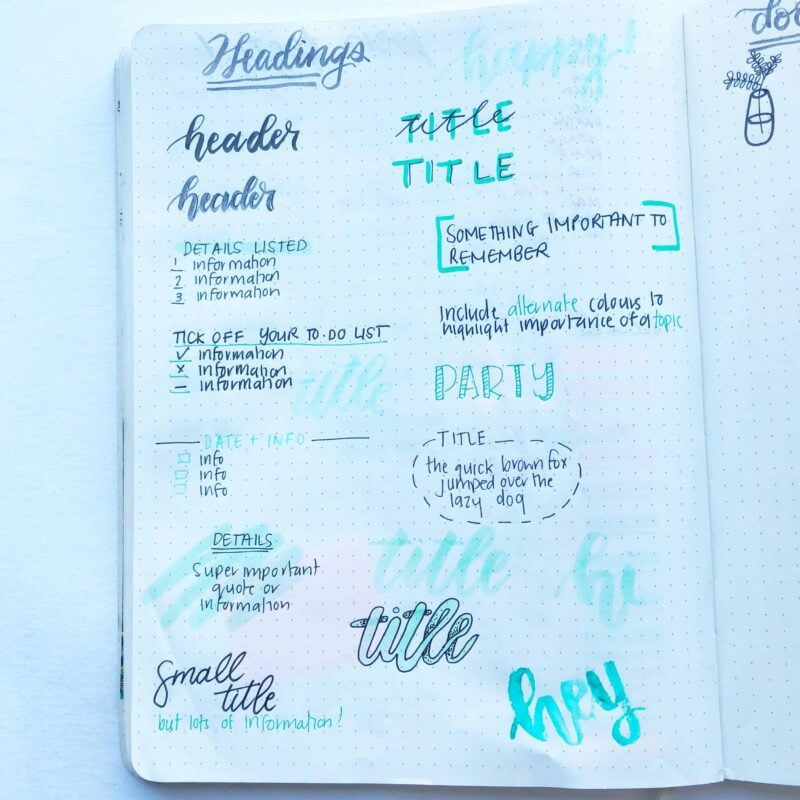 Headings
happy!
header
header
DETAILS LISTED
1 information
2 information
3 information
TICK OFF YOUR TO.DO LIST
✓ information
x information
– information
title
DATE + INFO
info
info
info
DETAILS
Super important
quote or
information
small
title
but lots of information!
title
TITLE
TITLE
SOMETHING IMPORTANT TO
REMEMBER
Include alternate colours to
highlight importance of a topic
PARTY
TITLE
the quick brown fox
jumped over the
lazy dog
title
hi
title
hey